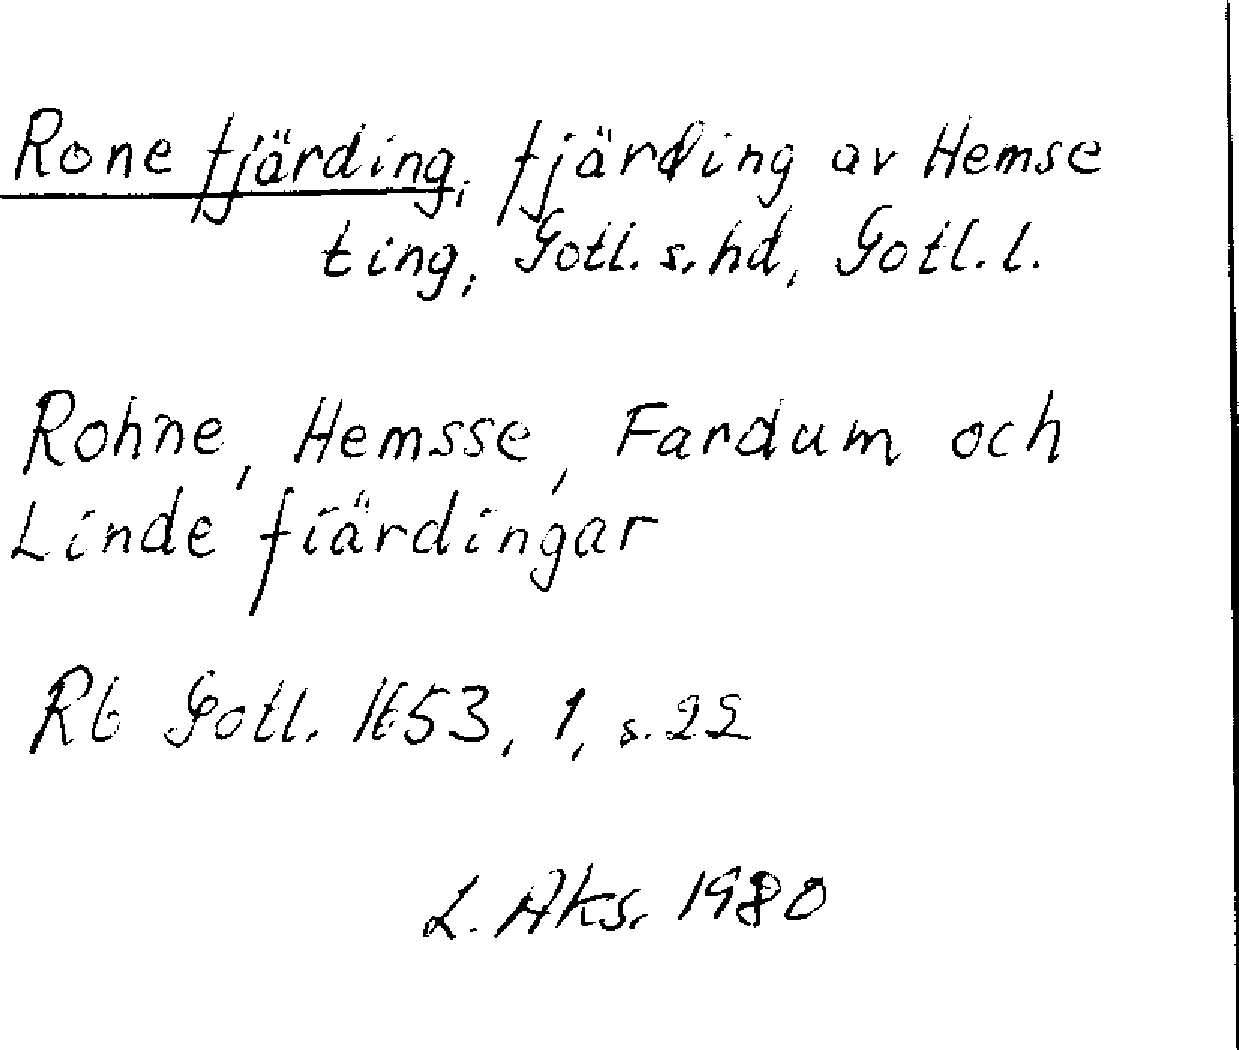 Rone fjärding, fjärding av Hemse
ting, Gotl. s. hd, Gotl. l.
Rohne, Hemsse, Fardum och
Linde fiärdingar
Rb Gotl. 1653, 1, s. 22
L. Aks. 1980